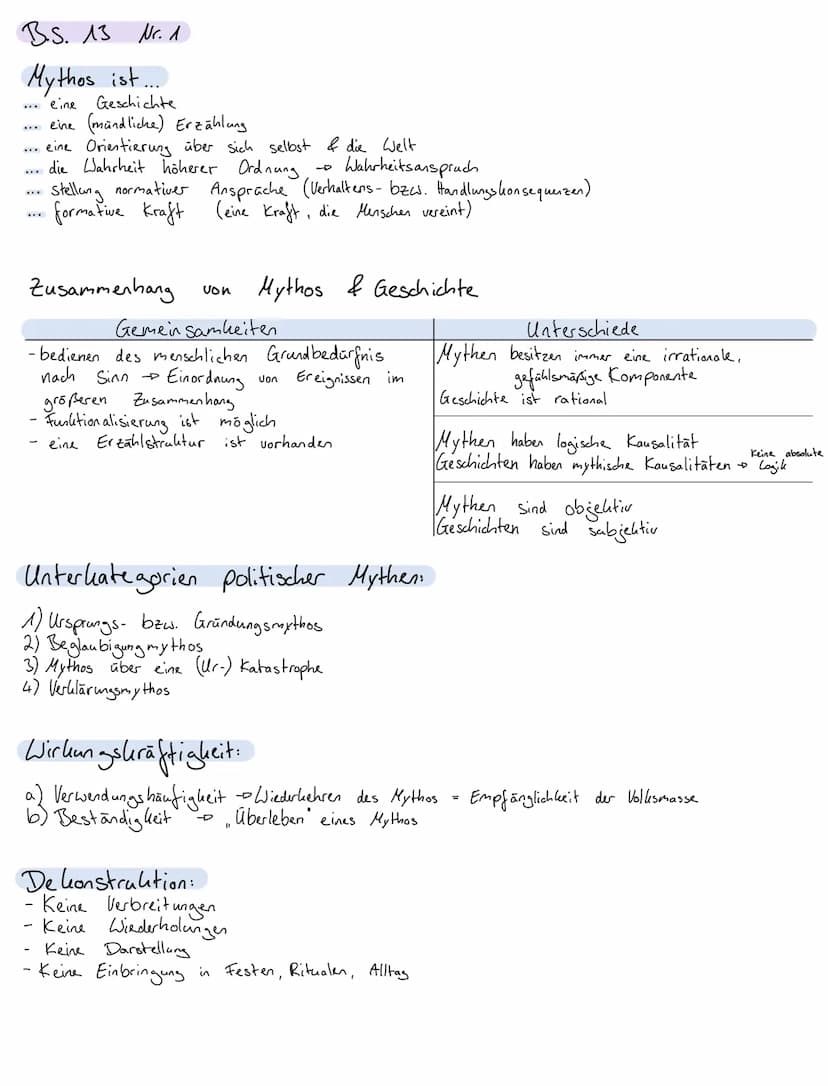 B.S. 13 Nr. 1
Mythos ist...
... eine Geschichte
... eine (mündliche) Erzählung
... eine Orientierung über sich selbst & die Welt
... die Wahrheit höherer Ordnung → Wahrheitsanspruch
... stellung normativer Ansprüche (Verhaltens- bzw. Handlungskonsequenzen)
... formative Kraft (eine Kraft, die Menschen vereint)
Zusammenhang von Mythos & Geschichte
Gemeinsamkeiten
- bedienen des menschlichen Grundbedürfnis
nach Sinn → Einordnung von Ereignissen im
größeren Zusammenhang
- Funktionalisierung ist möglich
- eine Erzählstruktur ist vorhanden
Unterschiede
Mythen besitzen immer eine irrationale,
gefühlsmäßige Komponente
Geschichte ist rational
Mythen haben logische Kausalität
Geschichten haben mythische Kausalitäten → keine absolute Logik
Mythen sind objektiv
Geschichten sind subjektiv
Unterkategorien politischer Mythen:
1) Ursprungs- bzw. Gründungsmythos
2) Beglaubigungmythos
3) Mythos über eine (Ur-) Katastrophe
4) Verklärungsmythos
Wirkungskräftigkeit:
a) Verwendungshäufigkeit → Wiederkehren des Mythos = Empfänglichkeit der Volksmasse
b) Beständigkeit → „Überleben" eines Mythos
Dekonstruktion:
- Keine Verbreitungen
- Keine Wiederholungen
- Keine Darstellung
- Keine Einbringung in Festen, Ritualen, Alltag